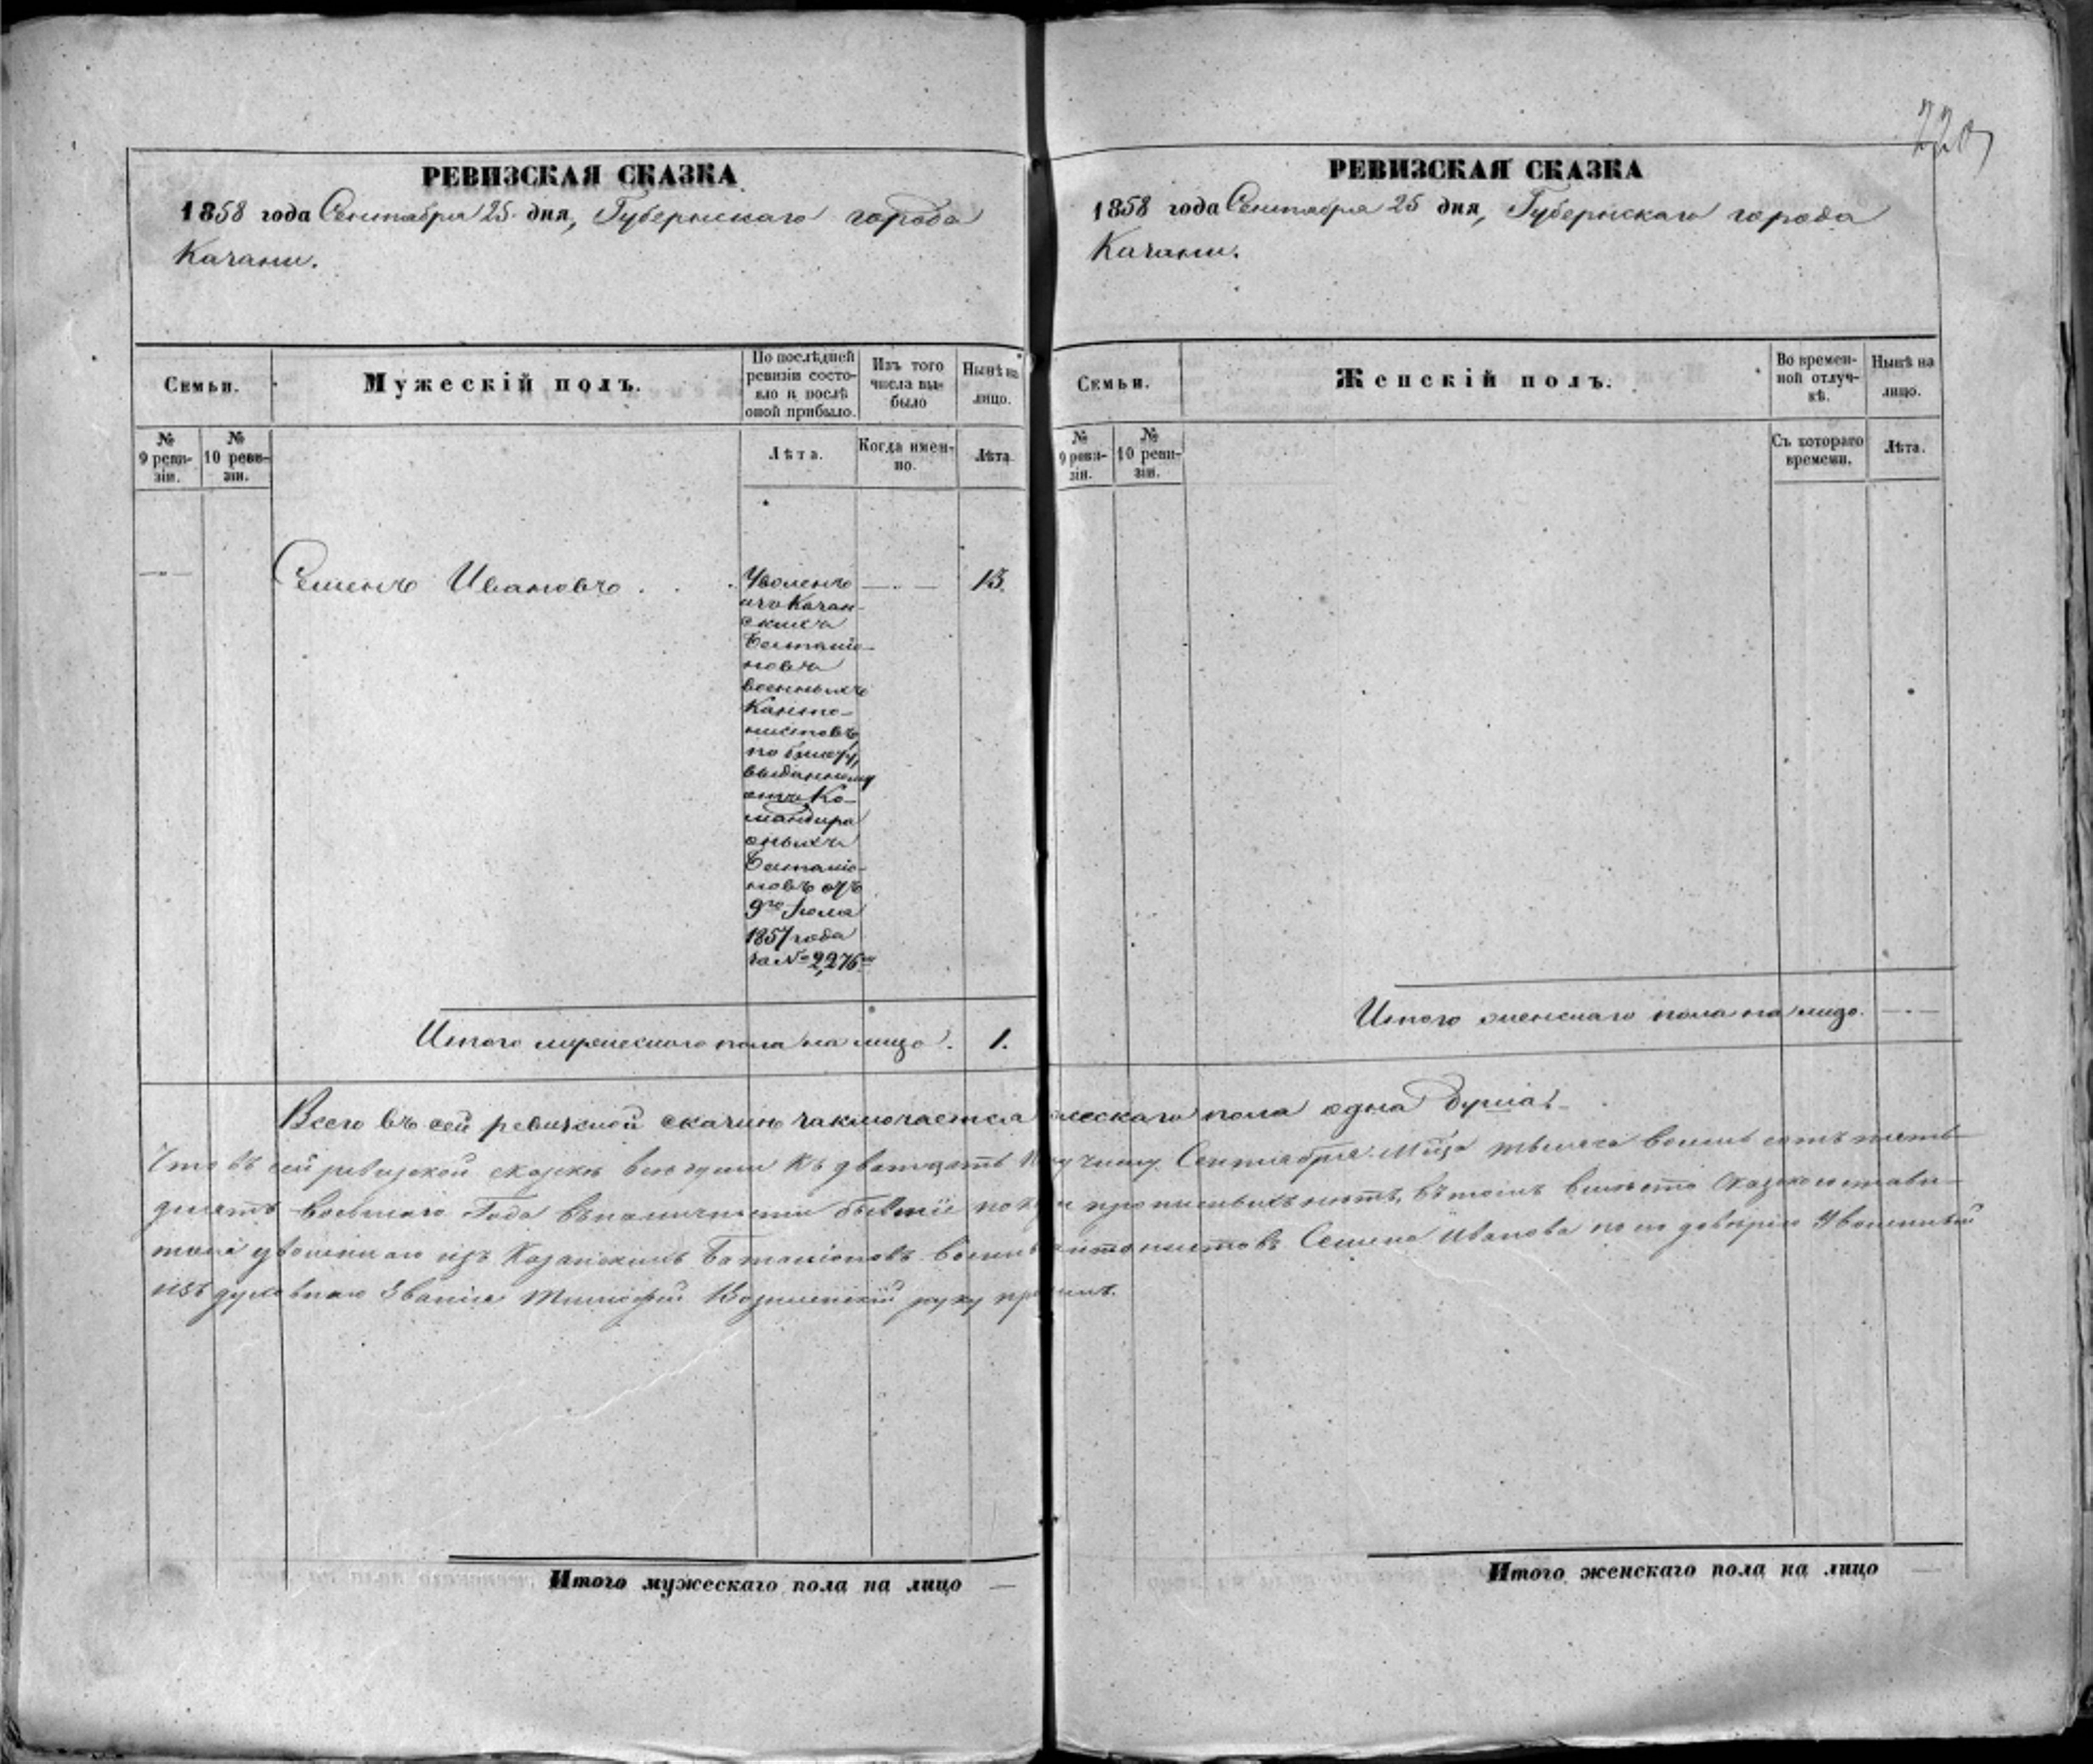 РЕВИЗСКАЯ СКАЗКА
1858 года Сентября 25 дня, Губернскаго города
Казани.
Семьи.
Мужескій полъ.
По послѣдней
ревизіи состо-
яло и послѣ
оной прибыло.
Изъ того
числа вы-
было
Нынѣ на
лицо.
№
9 реви-
зіи.
№
10 реви-
зіи.
Лѣта.
Когда имен-
но.
Лѣта.
Семенъ Ивановъ . . .
Уволенъ
изъ Казан-
скихъ
Баталіо-
новъ
военныхъ
Канто-
нистовъ
по билету,
выданному
отъ Ко-
мандира
оныхъ
Баталіо-
новъ отъ
9го Іюля
1857 года
за № 2,276м
13.
Итого мужескаго пола на лицо. 1.
Итого мужескаго пола на лицо
220
РЕВИЗСКАЯ СКАЗКА
1858 года Сентября 25 дня, Губернскаго города
Казани.
Семьи.
Женскій полъ.
Во времен-
ной отлуч-
кѣ.
Нынѣ на
лицо.
№
9 реви-
зіи.
№
10 реви-
зіи.
Съ котораго
времени.
Лѣта.
Итого женскаго пола на лицо.
Всего въ сей ревизской сказкѣ заключается мужескаго пола одна душа.
Что въ сей ревизской сказкѣ всѣ души къ двадцать числу Сентября М-ца тысяча восемь сотъ пять-
десятъ восьмаго Года въ наличности бывшіе показаны прописныхъ нѣтъ, въ томъ вмѣсто сказкосостави-
теля уволеннаго изъ Казанскихъ Баталіоновъ военныхъ кантонистовъ Семена Иванова по его довѣрію Уволенный
изъ духовнаго званія Тимофей Вознесенскій руку приложилъ.
Итого женскаго пола на лицо